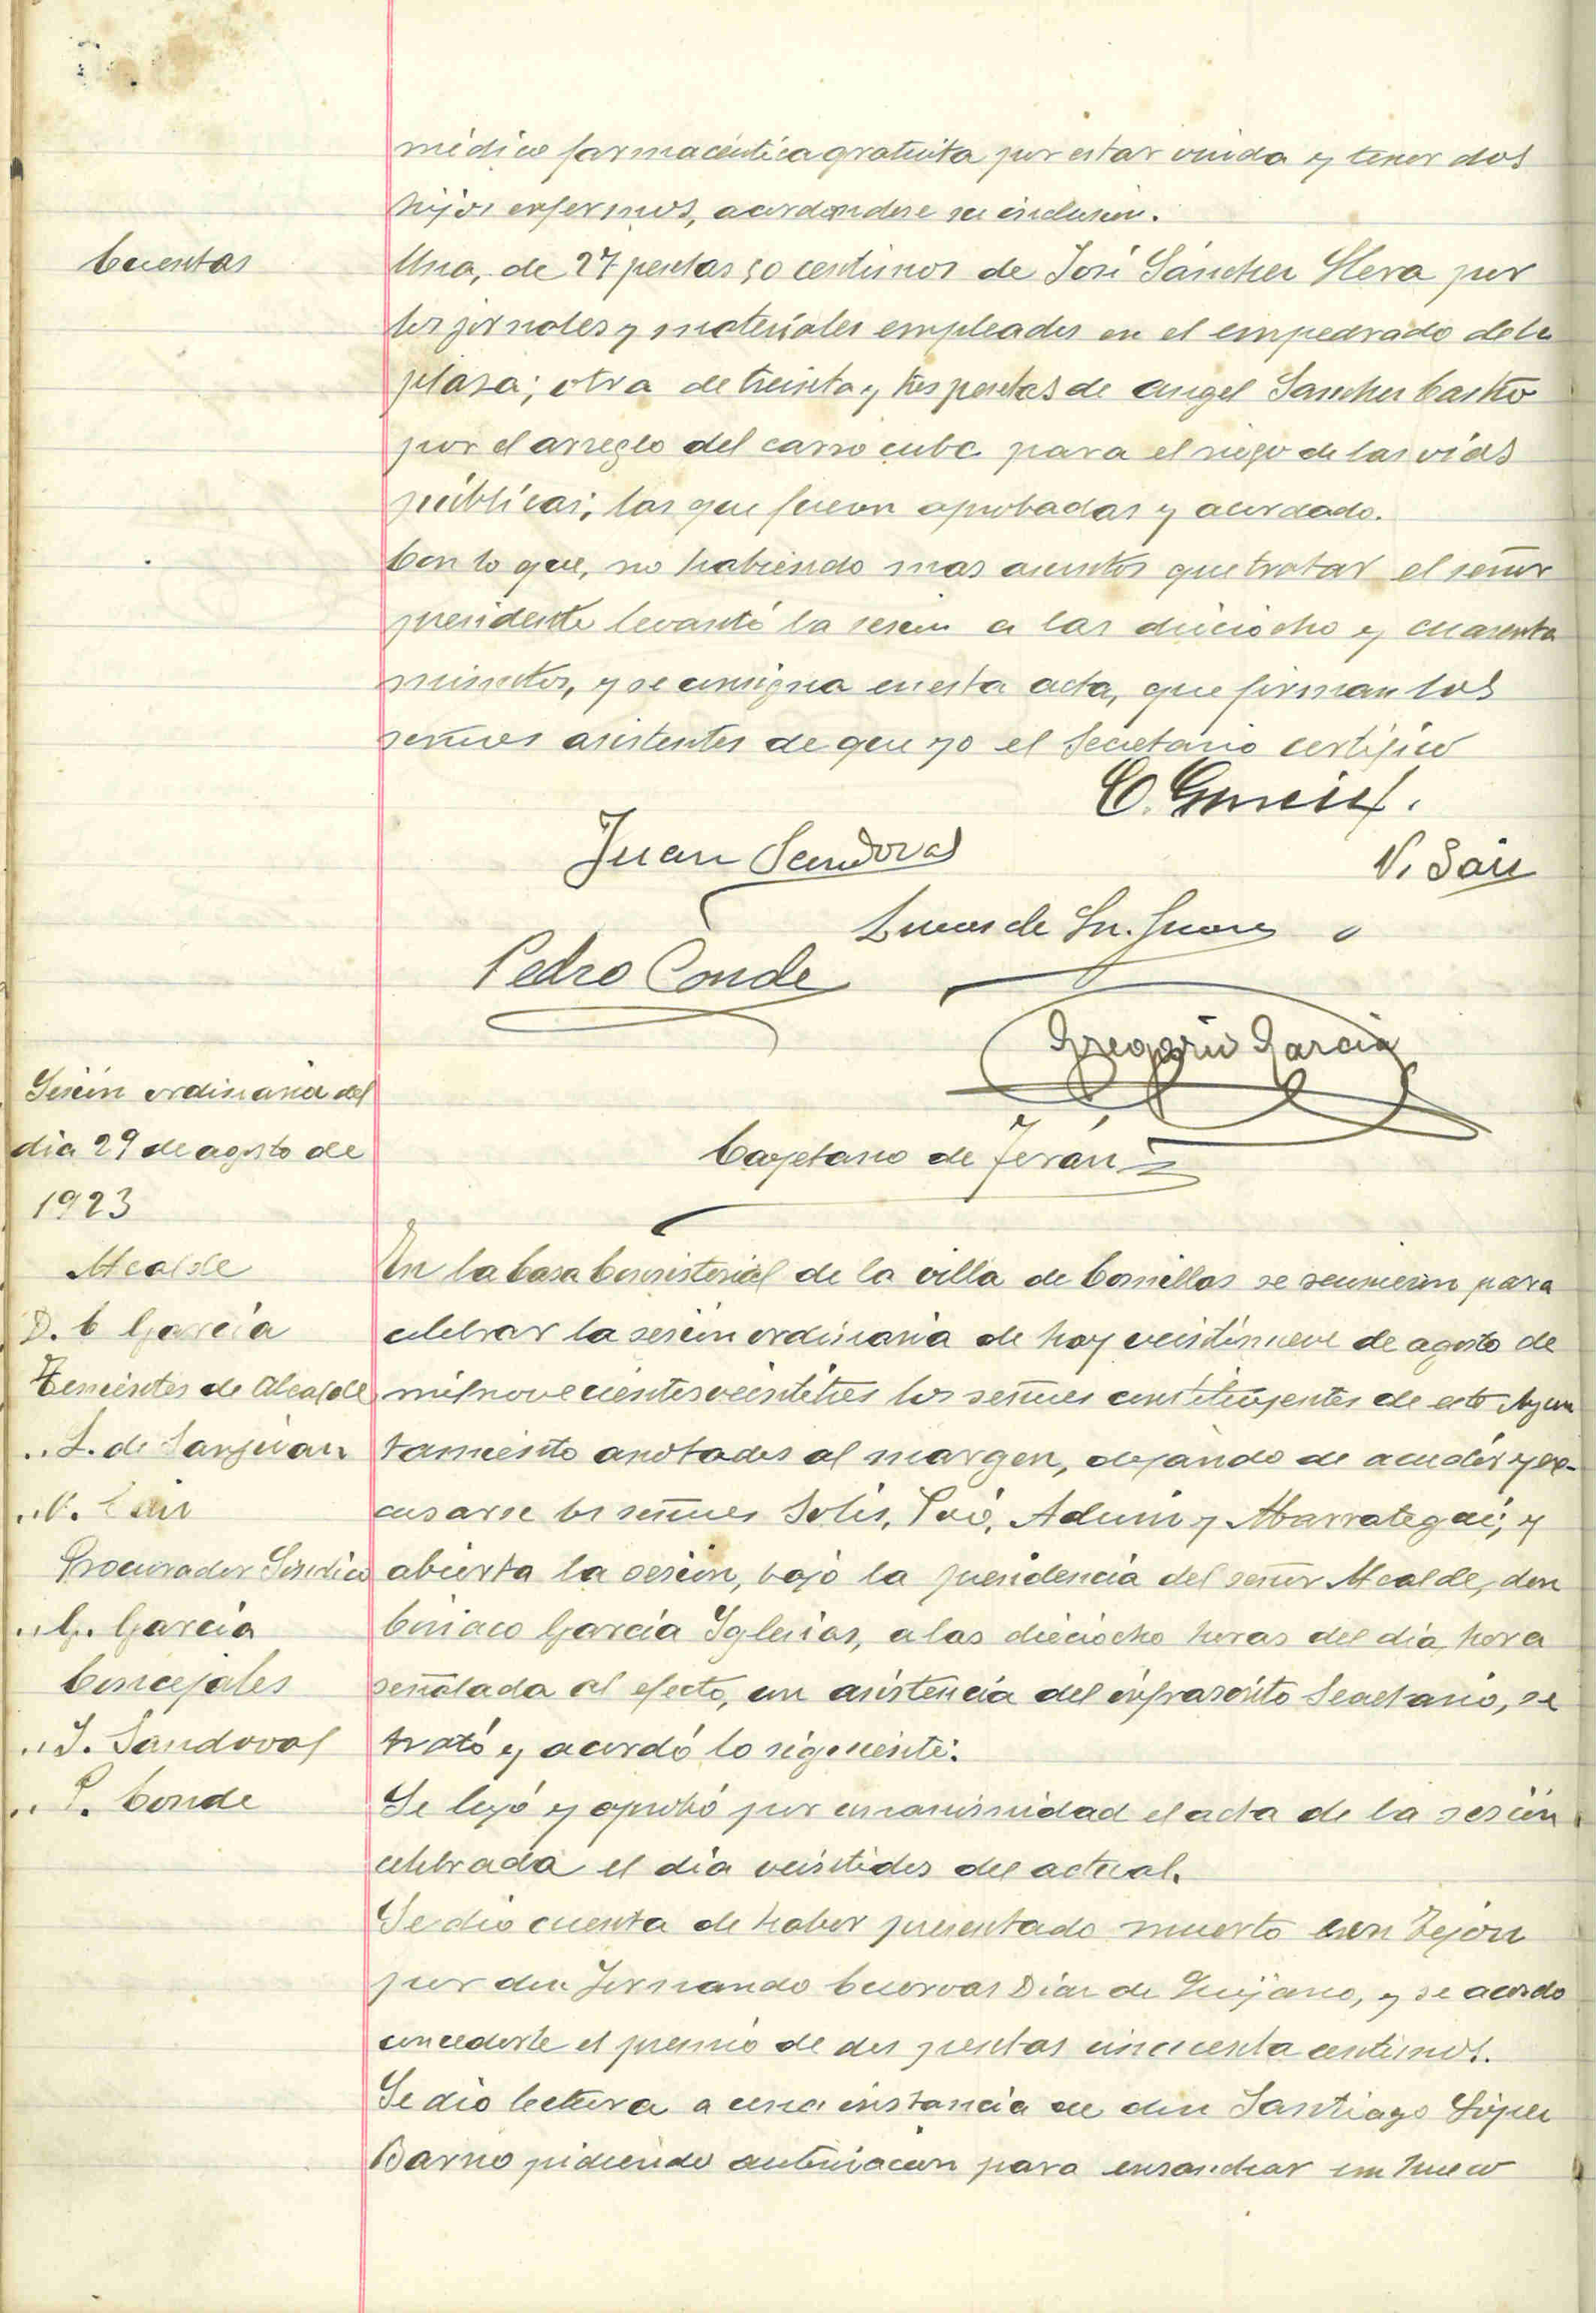 médico farmacéutica gratuita por estar viuda y tener dos
hijos enfermos, acordandose su inclusión.
Cuentas
Una, de 27 pesetas 50 centimos de José Sánchez Llera por
los jornales y materiales empleados en el empedrado de la
plaza; otra de treinta y tres pesetas de Angel Sanchez Castro
por el arreglo del carro cuba para el riego de las vias
públicas; las que fueron aprobadas y acordado.
Con lo que, no habiendo mas asuntos que tratar el señor
presidente levantó la sesion a las dieciocho y cuarenta
minutos, y se consigna en esta acta, que firman los
señores asistentes de que yo el Secretario certifico
C. García.
Juan Sandoval
V. Saiz
Lucas de Sn. Juan
Pedro Conde
Gregorio García
Cayetano de Terán
Sesión ordinaria del
dia 29 de agosto de
1923
Alcalde
D. C García
Tenientes de Alcalde
,, L. de Sanjuan
,, V. Saiz
Procurador Sindico
,, G. García
Concejales
,, J. Sandoval
,, P. Conde
En la Casa Consistorial de la villa de Comillas se reunieron para
celebrar la sesión ordinaria de hoy veintinueve de agosto de
mil novecientos veintitres los señores constituyentes de este Ayun
tamiento anotados al margen, dejando de acudir y ex-
cusarse los señores Solis, y Abarrategui, y
abierta la sesión, bajo la presidencia del señor Alcalde, don
Ciriaco García Iglesias, a las dieciocho horas del dia, hora
señalada al efecto, con asistencia del infrascrito Secretario, se
trató y acordó lo siguiente:
Se leyó y aprobó por unanimidad el acta de la sesión
celebrada el día veintidos del actual.
Se dio cuenta de haber presentado muerto un tejón
por don Fernando Cuervas Diaz de Quijano, y se acordo
concederle el premio de dos pesetas cincuenta centimos.
Se dió lectura a una instancia de don Santiago López
Barno pidiendo autorización para ensanchar un hueco